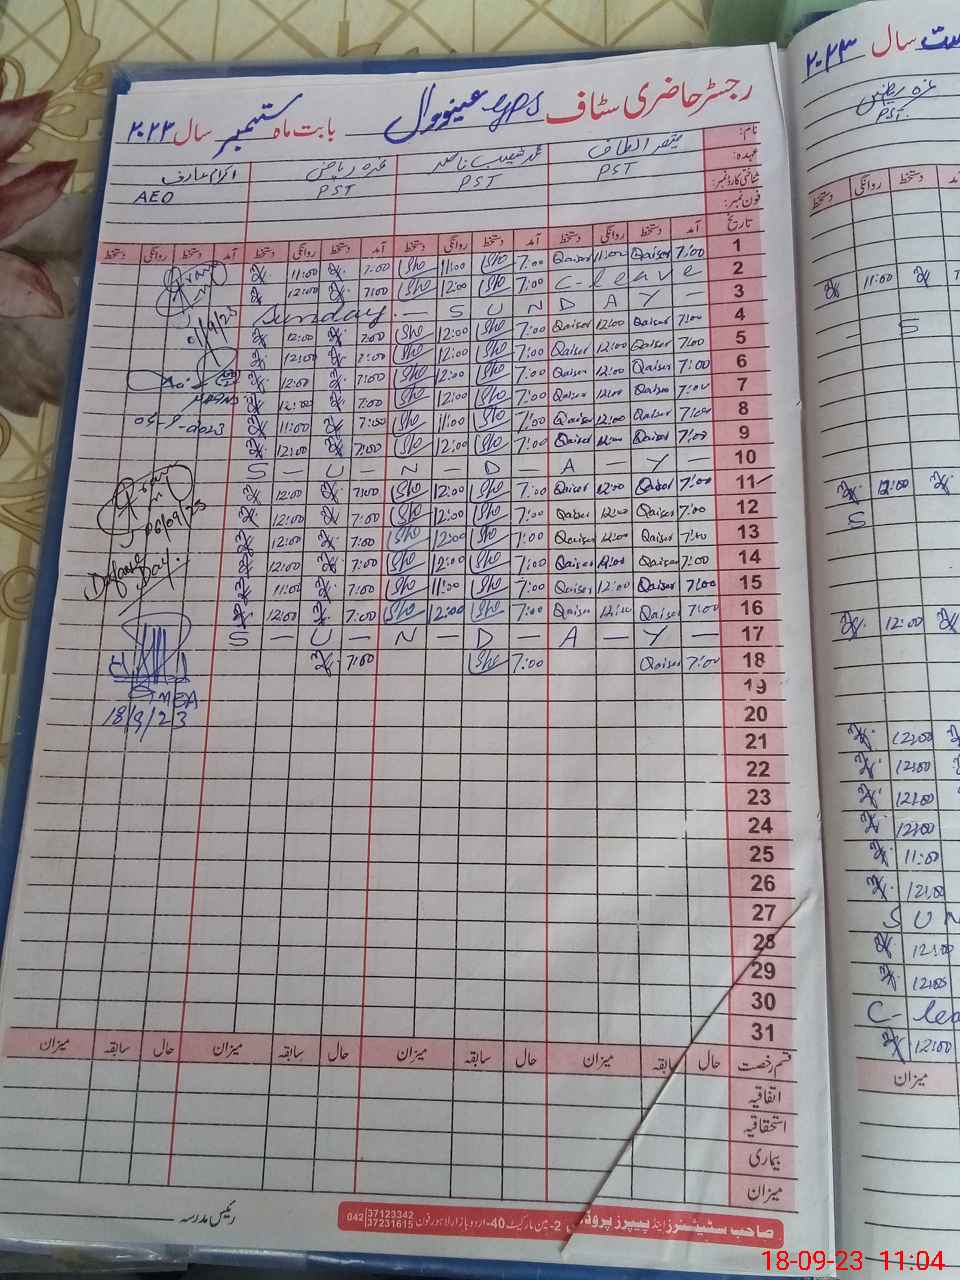 رجسٹر حاضری سٹاف gps عینووال بابت ماہ ستمبر سال ۲۰۲۳
نام: قیصر الطاف محمد شعیب ناصر عزہ ریاض اکرام عارف
عہدہ: PST PST PST AEO
شناختی کارڈ نمبر:
فون نمبر:
تاریخ آمد دستخط روانگی دستخط آمد دستخط روانگی دستخط آمد دستخط روانگی دستخط آمد دستخط روانگی دستخط
1 7:00 Qaiser 11:00 Qaiser 7:00 Sho 11:00 Sho 7:00 11:00
2 C-leave 7:00 Sho 12:00 Sho 7:00 12:00
3 Sunday - S U N D A Y -
4 7:00 Qaiser 12:00 Qaiser 7:00 Sho 12:00 Sho 7:00 12:00
5 7:00 Qaiser 12:00 Qaiser 7:00 Sho 12:00 Sho 7:00 12:00
6 7:00 Qaiser 12:00 Qaiser 7:00 Sho 12:00 Sho 7:00 12:00
7 7:00 Qaiser 12:00 Qaiser 7:00 Sho 12:00 Sho 7:00 12:00
8 7:00 Qaiser 12:00 Qaiser 7:00 Sho 11:00 Sho 7:00 11:00
9 7:00 Qaiser Qaiser 7:00 Sho 12:00 Sho 7:00 12:00
10 S - U - N - D - A - Y -
11 7:00 Qaiser 12:00 Qaiser 7:00 Sho 12:00 Sho 7:00 12:00
12 7:00 Qaiser 12:00 Qaiser 7:00 Sho 12:00 Sho 7:00 12:00
13 7:00 Qaiser 12:00 Qaiser 7:00 Sho 12:00 Sho 7:00 12:00
14 7:00 Qaiser 12:00 Qaiser 7:00 Sho 12:00 Sho 7:00 12:00
15 7:00 Qaiser 12:00 Qaiser 7:00 Sho 11:00 Sho 7:00 11:00
16 7:00 Qaiser 12:00 Qaiser 7:00 Sho 12:00 Sho 7:00 12:00
17 S - U - N - D - A - Y -
18 7:00 Qaiser 7:00 Sho 7:00
19
20
21
22
23
24
25
26
27
28
29
30
31
1/9/23
05-9-2023
06/09/23
Defence Day.
18/9/23
قسم رخصت حال سابقہ میزان حال سابقہ میزان حال سابقہ میزان حال سابقہ میزان
اتفاقیہ
استحقاقیہ
بیماری
میزان
رئیس مدرسہ
صاحب سٹیشنرز اینڈ پیپرز پروڈکٹس 2-مین مارکیٹ 40-اردو بازار لاہور فون 042 37123342 37231615
سال ۲۰۲۳
عزہ ریاض
PST.
دستخط روانگی دستخط
11:00
S
12:00
S
12:00
12:00
12:00
12:00
12:00
11:00
12:00
S U N
12:00
12:00
C-lea
12:00
میزان
18-09-23 11:04